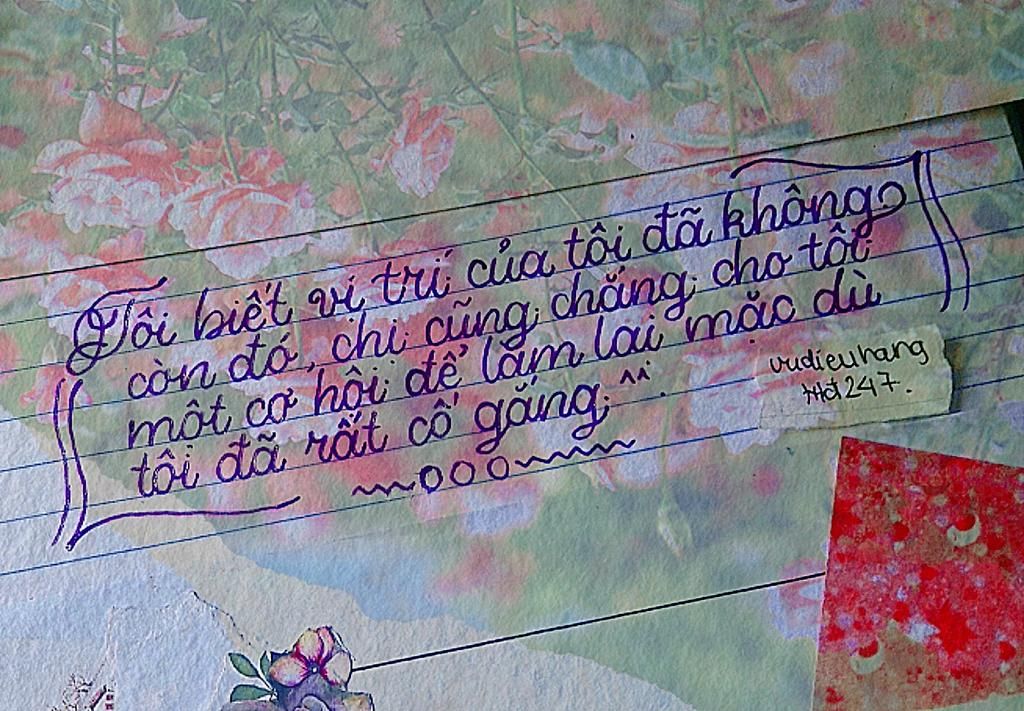 Tôi biết vị trí của tôi đã không
còn đó, chị cũng chẳng cho tôi
một cơ hội để làm lại mặc dù
tôi đã rất cố gắng ^^.
vudieuhang
247.